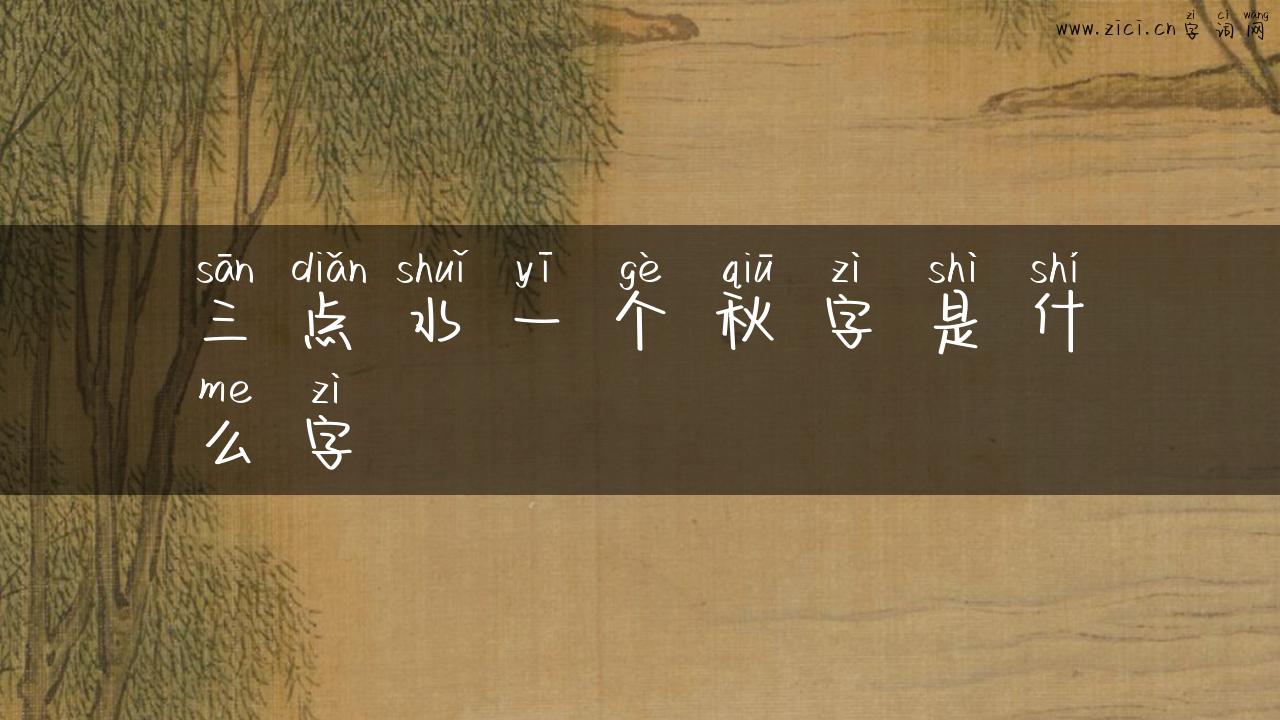 zì cí wǎng
www.zici.cn 字词网
sān diǎn shuǐ yī gè qiū zì shì shí
三点水一个秋字是什
me zì
么字